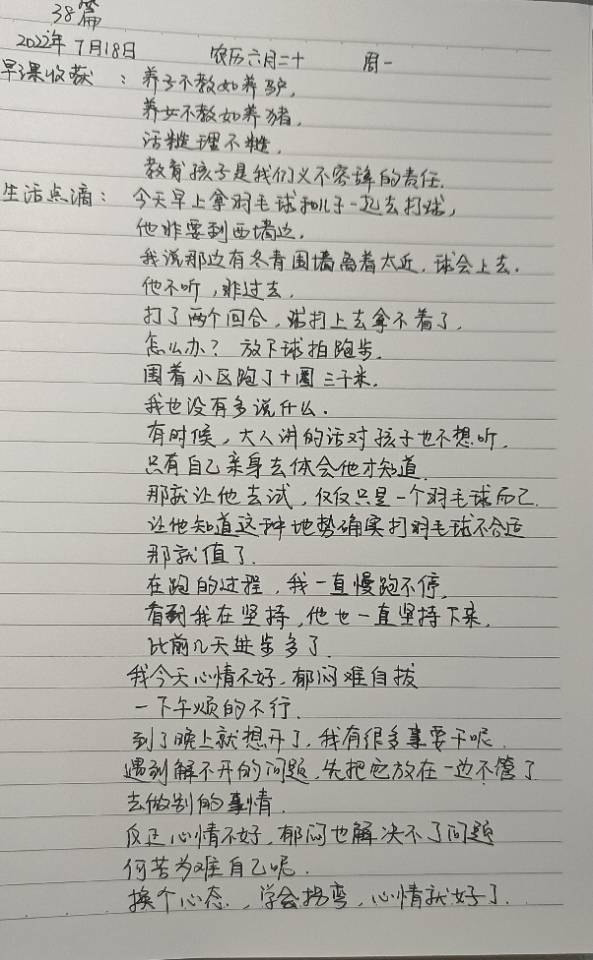 38篇
2022年7月18日 农历六月二十 周一
早课收获：养子不教如养驴，
养女不教如养猪，
话糙理不糙，
教育孩子是我们义不容辞的责任.
生活点滴：今天早上拿羽毛球和儿子一起去打球，
他非要到西墙边.
我说那边有冬青围墙离着太近，球会上去.
他不听，非过去.
打了两个回合，球打上去拿不着了.
怎么办？放下球拍跑步.
围着小区跑了十圈三千米.
我也没有多说什么.
有时候，大人讲的话对孩子也不想听.
只有自己亲身去体会他才知道.
那就让他去试，仅仅只是一个羽毛球而已.
让他知道这种地势确实打羽毛球不合适
那就值了.
在跑的过程，我一直慢跑不停，
看到我在坚持，他也一直坚持下来.
比前几天进步多了.
我今天心情不好，郁闷难自拔
一下午烦的不行.
到了晚上就想开了，我有很多事要干呢.
遇到解不开的问题，先把它放在一边不管了
去做别的事情.
反正心情不好，郁闷也解决不了问题
何苦为难自己呢.
换个心态，学会拐弯，心情就好了.